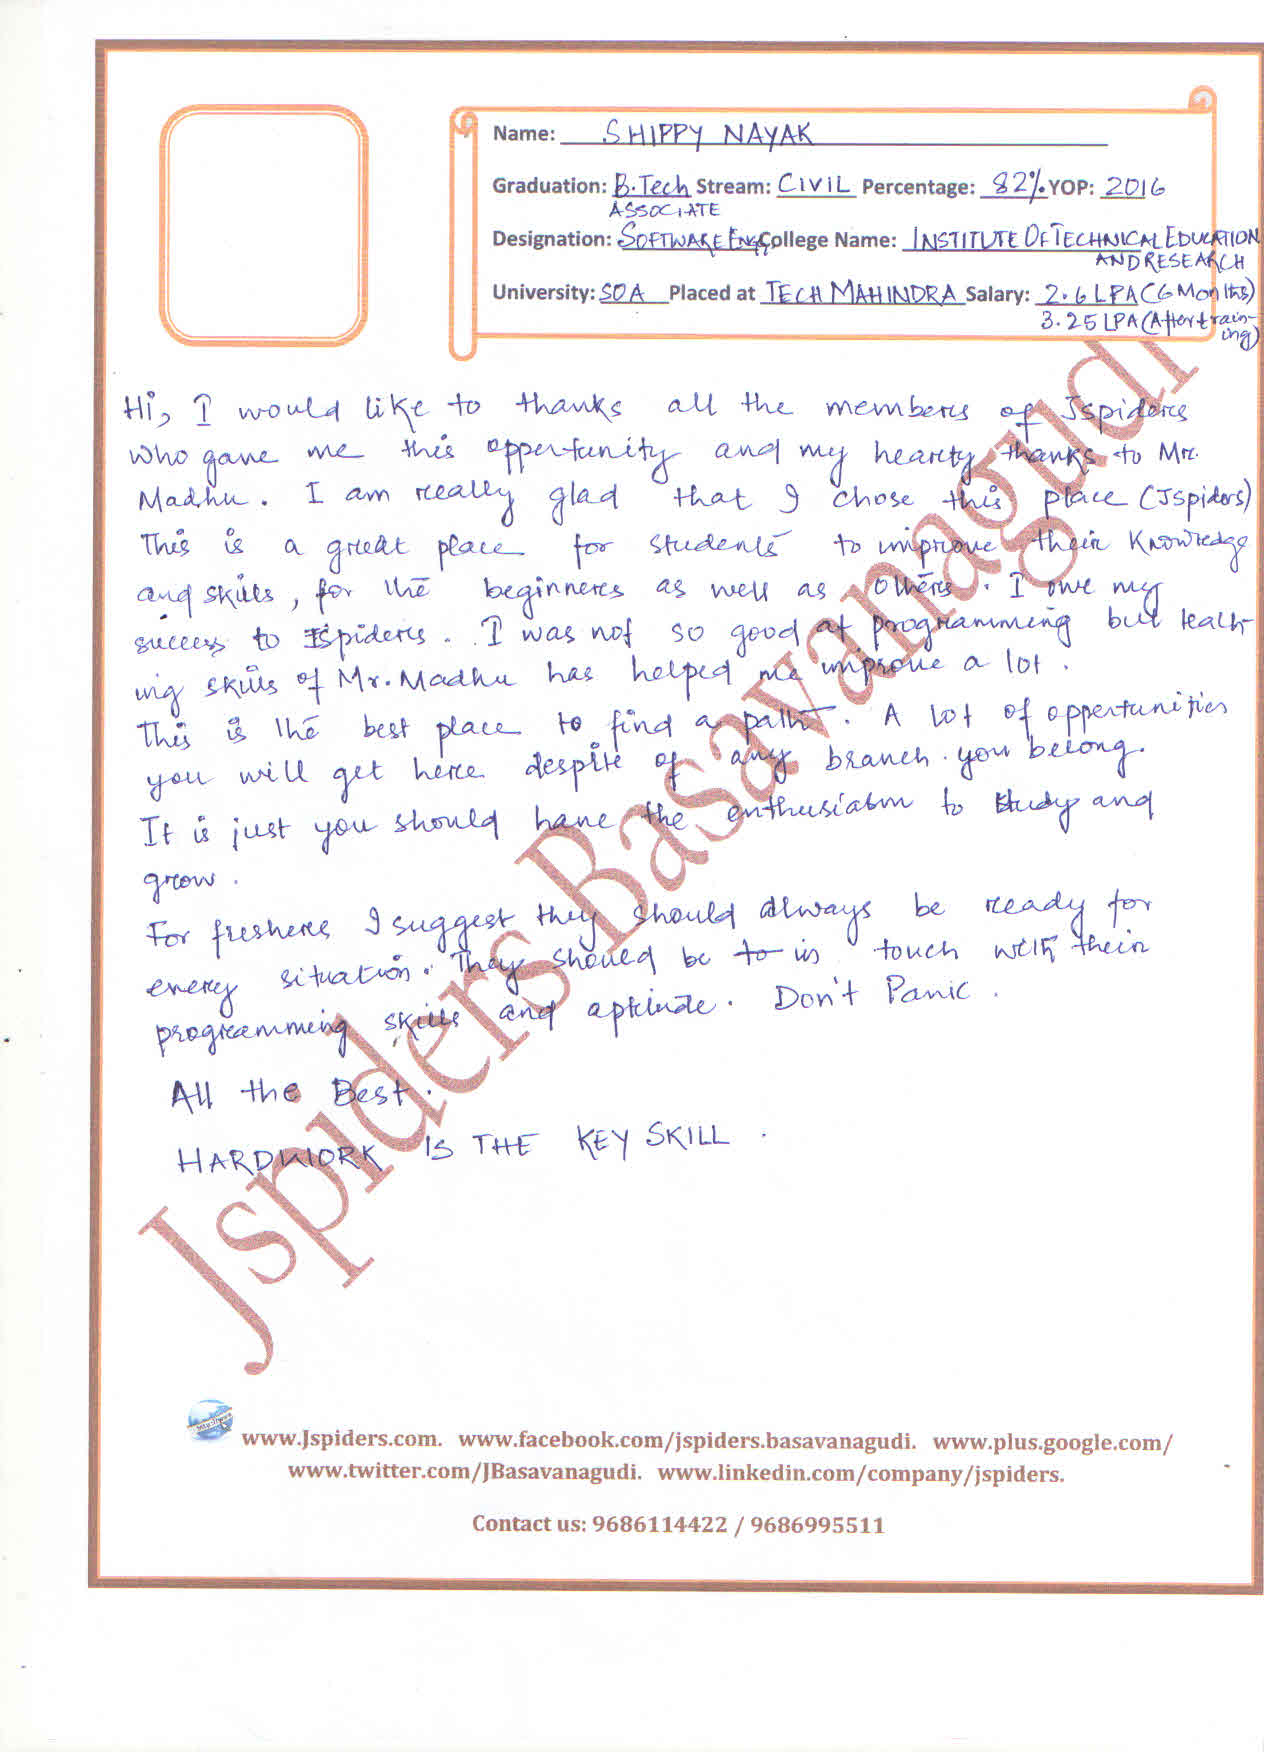 Name: SHIPPY NAYAK
Graduation: B.Tech Stream: CIVIL Percentage: 82% YOP: 2016
ASSOCIATE
Designation: SOFTWARE ENGG College Name: INSTITUTE OF TECHNICAL EDUCATION
AND RESEARCH
University: SOA Placed at TECH MAHINDRA Salary: 2.6 LPA (6 Months)
3.25 LPA (After train-
ing)
Hi, I would like to thanks all the members of Jspiders
who gave me this oppertunity and my hearty thanks to Mr.
Madhu. I am really glad that I chose this place (Jspiders)
This is a great place for students to improve their knowledge
and skills, for the beginners as well as others. I owe my
success to Jspiders. I was not so good at programming but teach-
ing skills of Mr. Madhu has helped me improve a lot.
This is the best place to find a path. A lot of oppertunities
you will get here despite of any branch you belong.
It is just you should have the enthusiasm to study and
grow.
For freshers I suggest they should always be ready for
every situation. They should be to in touch with their
programming skills and aptitude. Don't Panic.
All the Best.
HARDWORK IS THE KEY SKILL.
Jspiders Basavanagudi
http://www
www.Jspiders.com. www.facebook.com/jspiders.basavanagudi. www.plus.google.com/
www.twitter.com/JBasavanagudi. www.linkedin.com/company/jspiders.
Contact us: 9686114422 / 9686995511